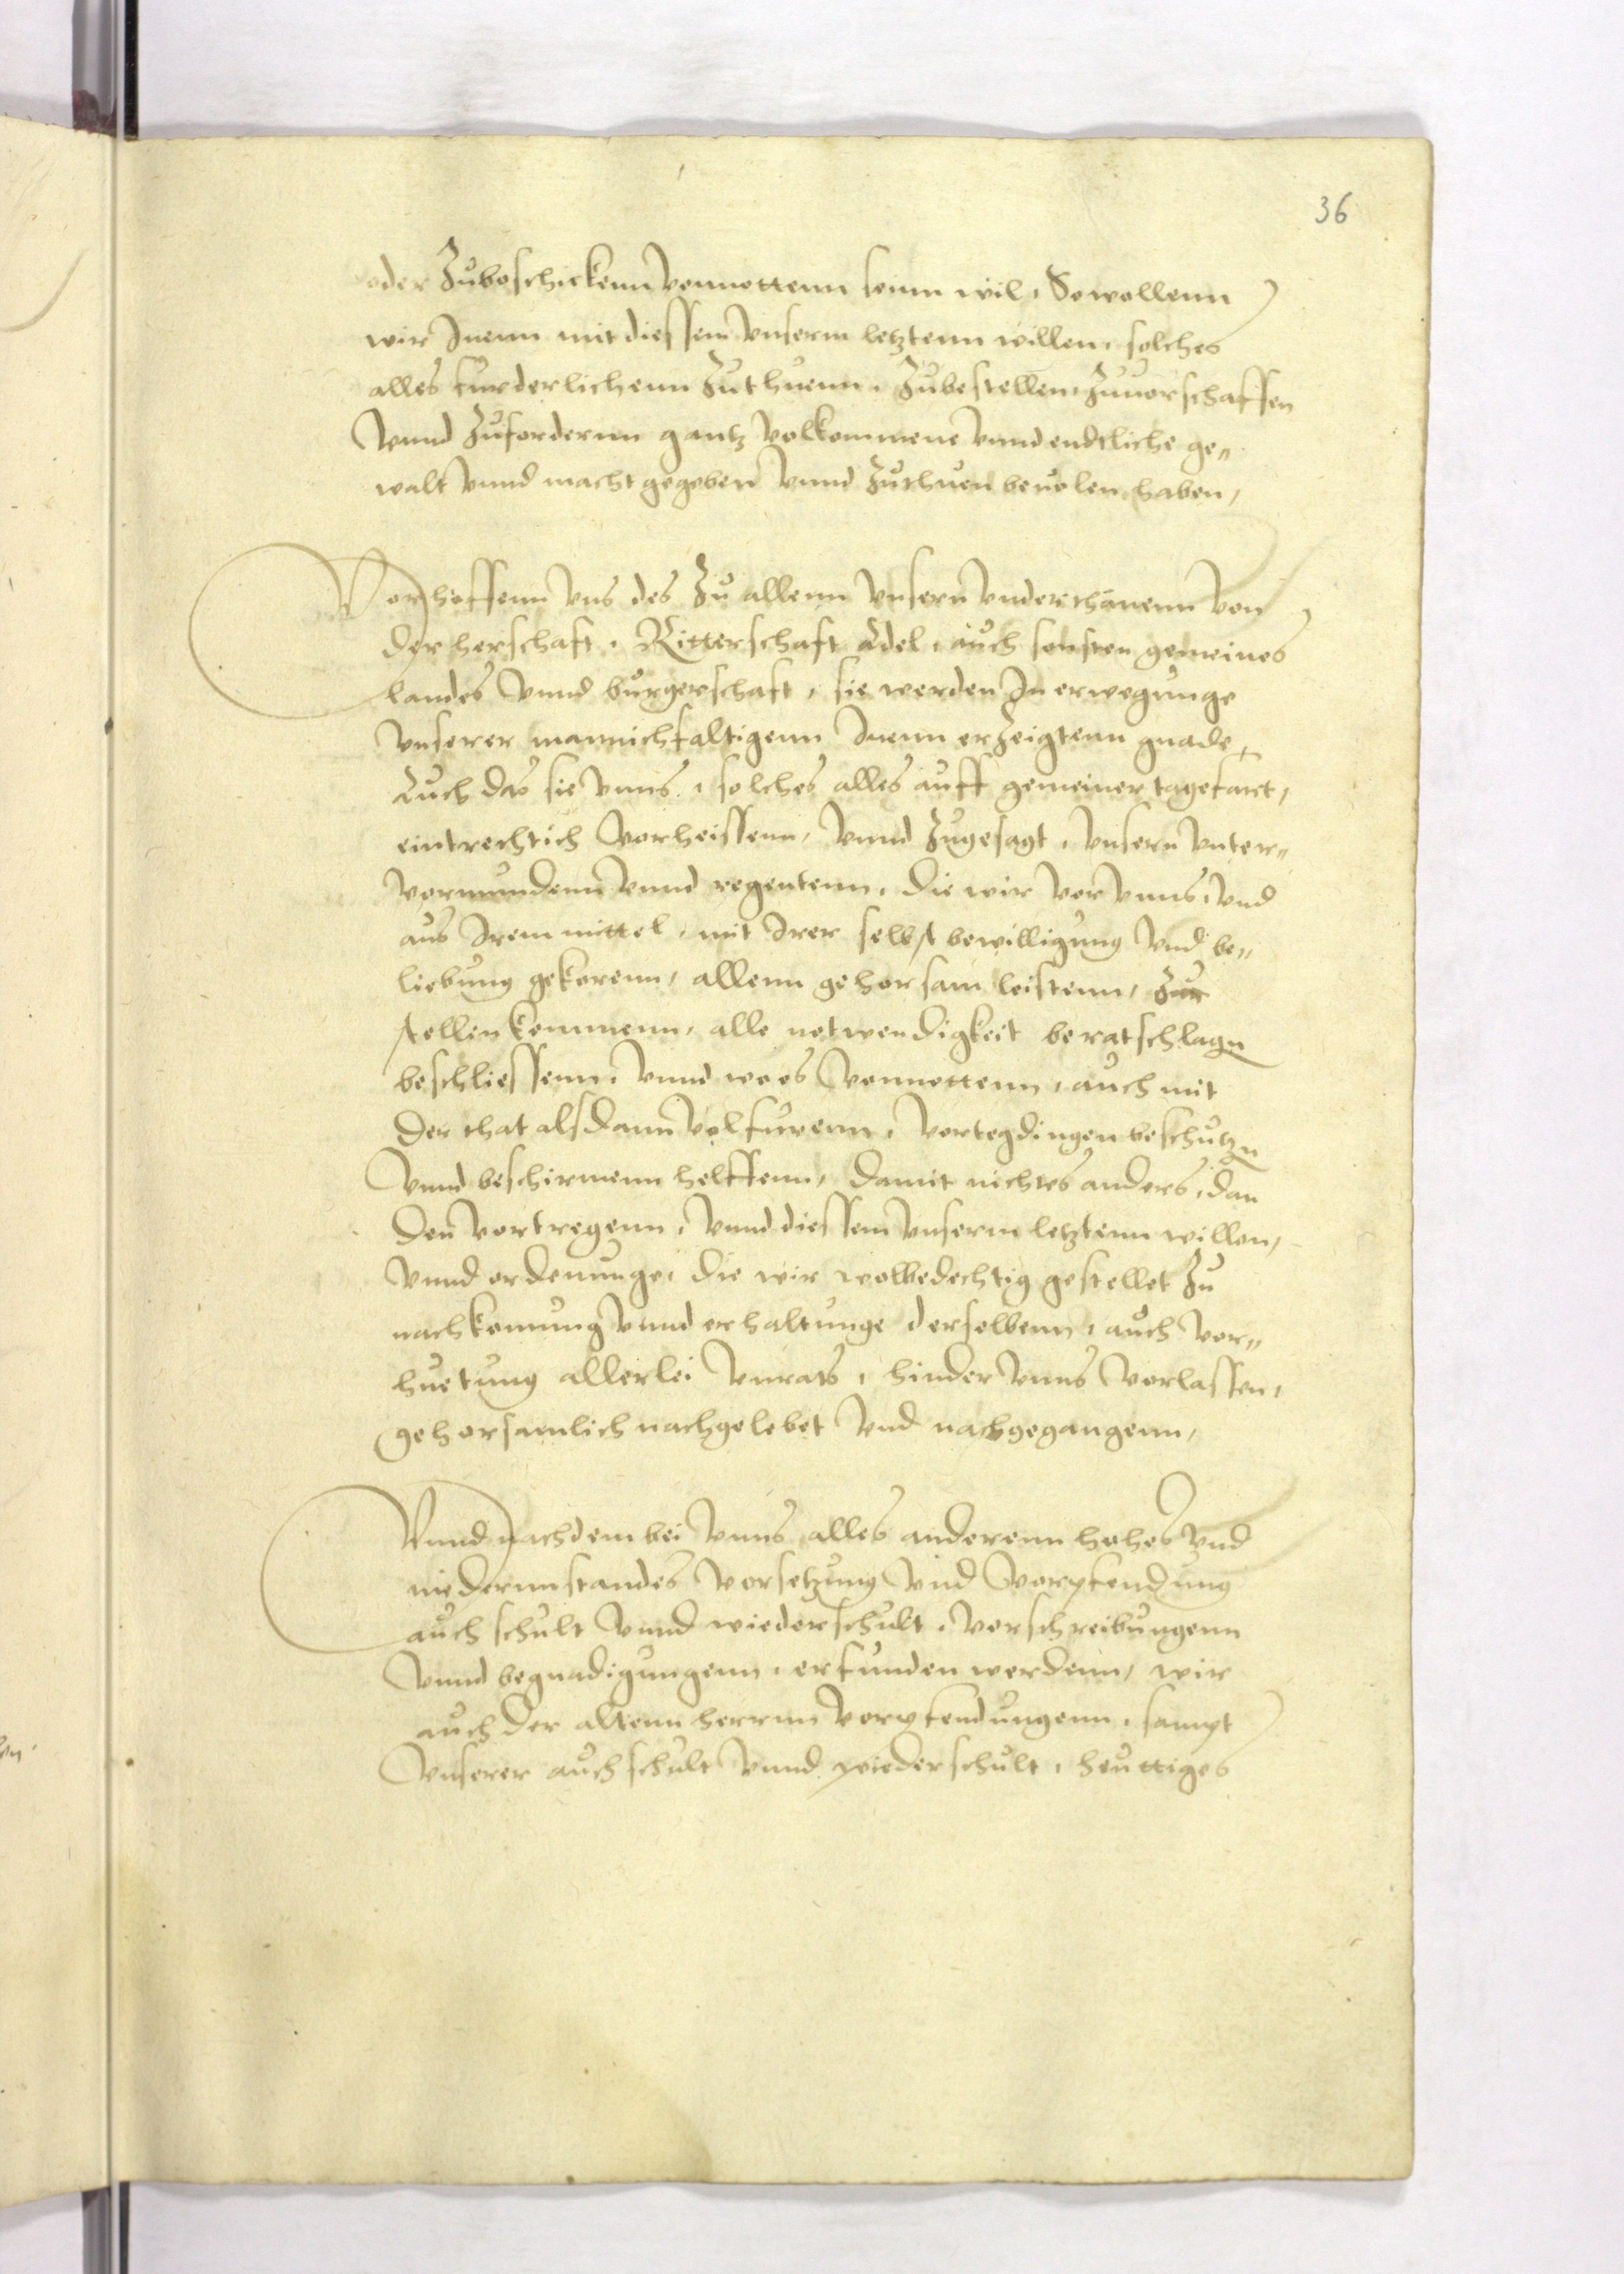 36
oder Zubeschickenn vonnottenn seinn wil, So wollenn
wir Inenn mit diessem vnserm letztenn willen, solches
alles furderlichenn Zuthuenn, Zubestellen, Zuuorschaffen
vnnd Zufordernn gantz volkommene vnnd endtliche ge„
walt vnnd macht gegeben vnnd Zuthuen beuolen haben,
Vorhoffenn vns des Zu allenn vnsern vnderthanenn von
der herschaft, Ritterschaft Adel, auch sonsten gemeines
landes vnnd burgerschaft, sie werden In erwegunge
vnserer mannichfaltigenn Inenn erZeigtenn gnade,
Auch das sie vnns, solches alles auff gemeiner tagefart,
eintrechtich vorheissenn, vnnd Zugesagt, vnsern vnter„
vormundenn vnnd regentenn, die wir vor vnns, vnd
aus Irem mittel, mit Irer selbst bewilligung vnd be„
liebung gekorenn, allenn gehorsam leistenn, Zur
stellen kommenn, alle notwendigkeit beratschlagn
beschliessenn, vnnd woes vonnottenn, auch mit
der that alsdann volfurenn, vortegdingen beschutzn
vnnd beschirmenn helffenn, damit nichtes anders, dan
den vortregenn, vnnd diessem vnserm letztenn willen,
vnnd ordenunge, die wir wolbedechtig gestellet Zu
nachkomung vnnd erhaltunge derselbenn, auch vor„
huetung allerlei vnrats, hinder vnns vorlassen,
gehorsamlich nachgelebet vnd nachgegangenn,
Vnnd nachdem bei vnns alles anderenn hohes vnd
niedernnstandes vorsetzung vnd vorpfendung
auch schult vnnd wiederschult, vorschreibungenn
vnnd begnadigungenn, erfunden werdenn, wir
auch der altenn herrnn vorpfendungenn, sampt
vnserer auch schult vnnd wiederschult, heuttiges